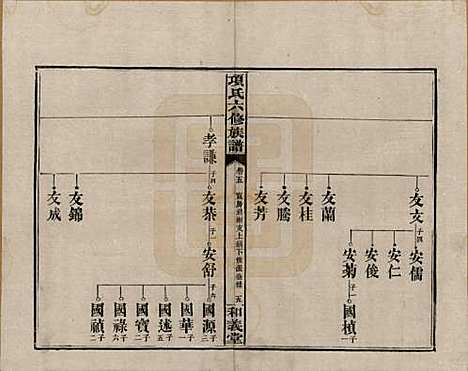 友文 子四
友蘭
友桂
友騰
友芳
安儒
安仁
安俊
安菊 子一
國楨 子一
項氏六修族譜
卷五
五
和義堂
孝謙 子四
友恭 子一
友錦
友成
安舒 子六
國源 子三
國華 子一
國述 子五
國寶 子二
國祿 子六
國禎 子二